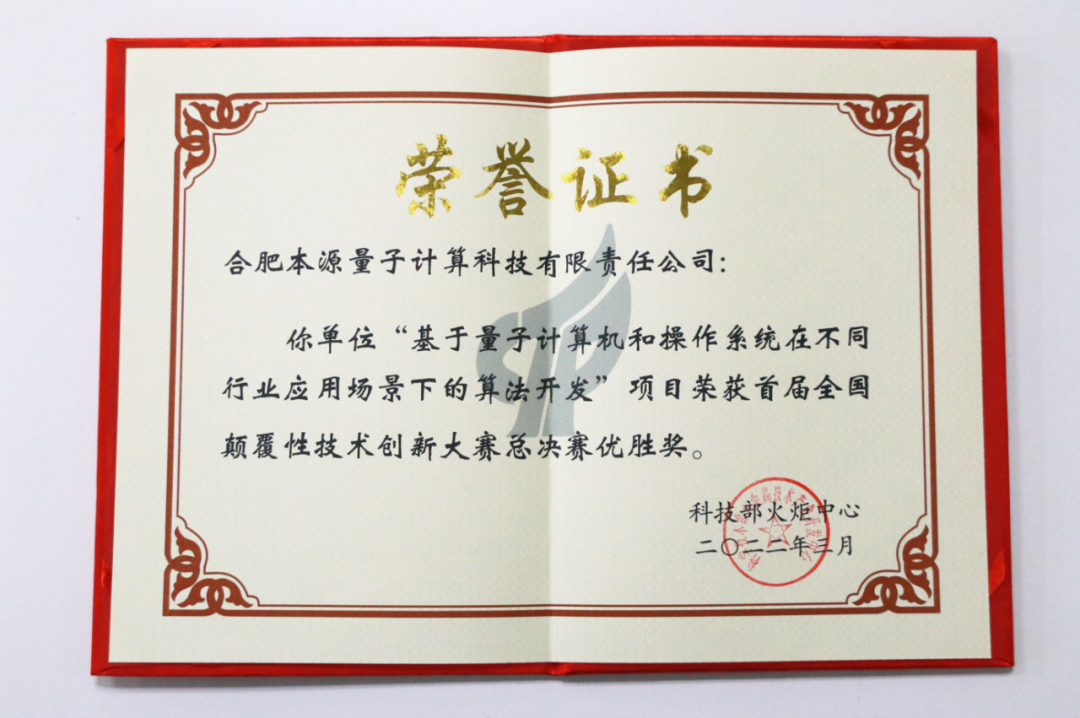 荣誉证书
合肥本源量子计算科技有限责任公司：
你单位“基于量子计算机和操作系统在不同
行业应用场景下的算法开发”项目荣获首届全国
颠覆性技术创新大赛总决赛优胜奖。
科技部火炬中心
二〇二二年三月